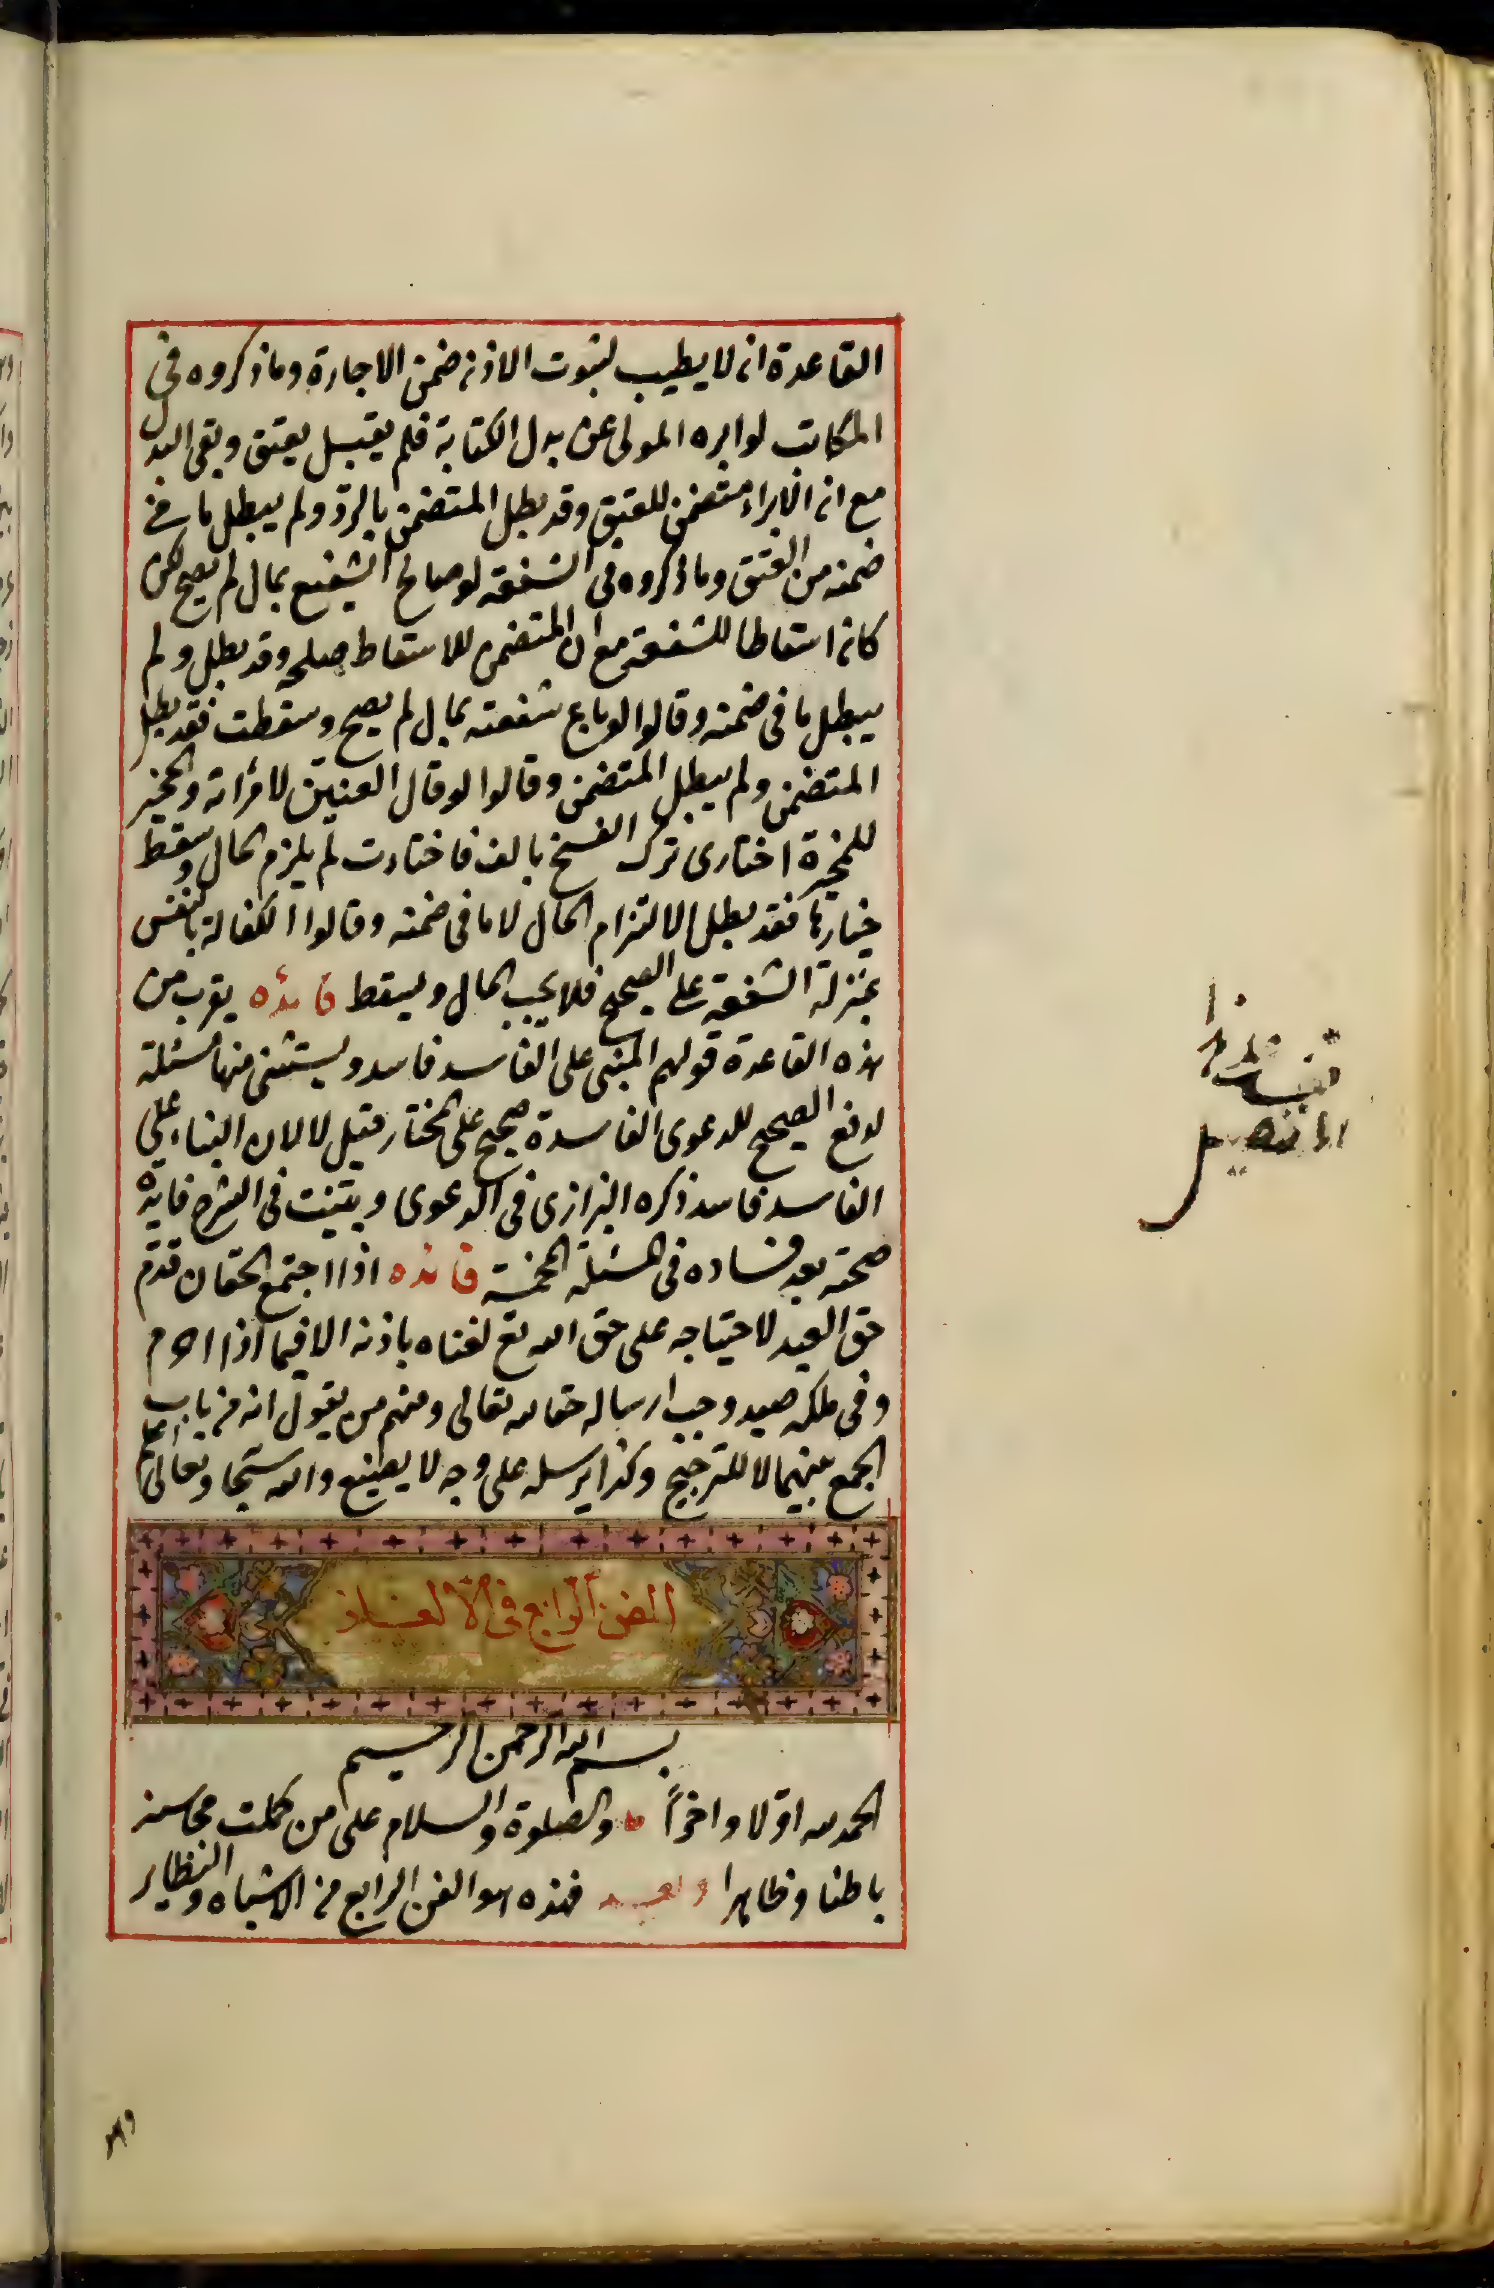 القاعدة انه لا يطيب لثبوت الاذن ضمن الاجارة وما ذكروه فى
المكاتب لو ابره المولى عن بدل الكتابة فلم يقبل يعتق وبقى البدل
مع ان الابراء متضمن للعتق وقد بطل المتضمن بالرد ولم يبطل ما فى
ضمنه من العتق وما ذكروه فى الشفعة لو صالح الشفيع بمال لم يصح لكن
كان اسقاطا للشفعة مع ان المتضمن للاسقاط صلحه وقد بطل ولم
يبطل ما فى ضمنه وقالوا لو باع شفعته بمال لم يصح وسقطت فقد بطل
المتضمن ولم يبطل المتضمن وقالوا لو قال العنين لامرأته والمخير
للمخيرة اختارى ترك الفسخ بالف فاختارت لم يلزم المال وسقط
خيارها فقد بطل الالتزام المال لا ما فى ضمنه وقالوا الكفالة بالنفس
بمنزلة الشفعة على الصحيح فلا يجب المال ويسقط فائده يقرب من
هذه القاعدة قولهم المبنى على الفاسد فاسد ويستثنى منها مسئلة
لدفع الصحيح للدعوى الفاسدة صحيح على المختار وقيل لا لان البناء على
الفاسد فاسد ذكره البزازى فى الدعوى وبينت فى الشرح فايدة
صحته بعد فساده فى المسئلة المخمسة فائده اذا اجتمع الحقان قدم
حق العبد لاحتياجه على حق الله تع لغناه باذنه الا فيما اذا احرم
وفى ملكه صيد وجب ارساله حقا لله تعالى ومنهم من يقول انه من باب
الجمع بينهما لا للترجيح وكذا يرسله على وجه لا يضيع والله سبحا وتعالى اعلم
الفن الرابع فى الالغاز
بسم الله الرحمن الرحيم
الحمد لله اولا واخرا والصلوة والسلام على من كملت محاسنه
باطنا وظاهرا وبعد فهذه هو الفن الرابع من الاشباه والنظاير